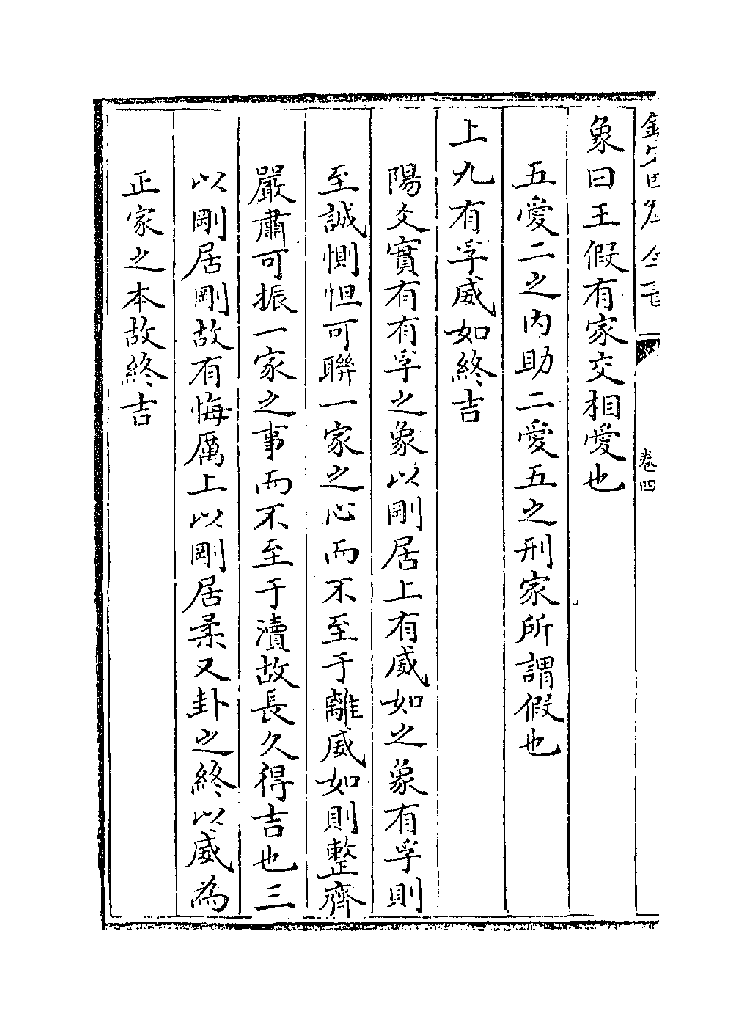 欽定四庫全書
卷四
象曰王假有家交相愛也
五愛二之内助二愛五之刑家所謂假也
上九有孚威如終吉
陽爻實有有孚之象以剛居上有威如之象有孚則
至誠惻怛可聯一家之心而不至于離威如則整齊
嚴肅可振一家之事而不至于瀆故長久得吉也三
以剛居剛故有悔厲上以剛居柔又卦之終以威為
正家之本故終吉